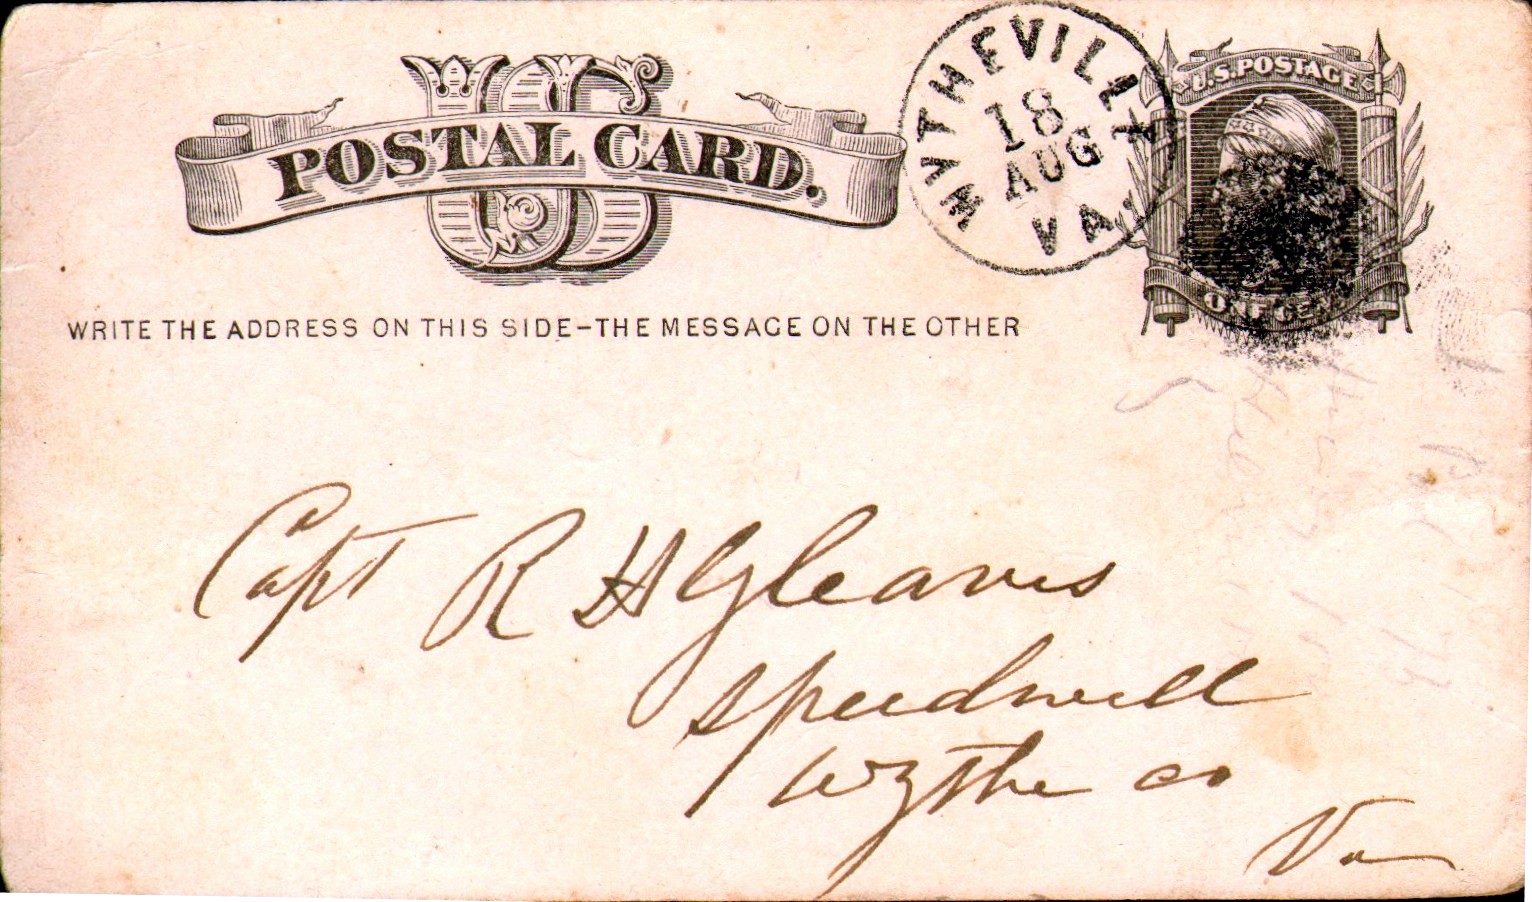 US
POSTAL CARD.
WYTHEVILLE
18
AUG
VA
U.S. POSTAGE
ONE CENT
WRITE THE ADDRESS ON THIS SIDE–THE MESSAGE ON THE OTHER
Capt R H Gleaves
Speedwell
Wythe co
Va